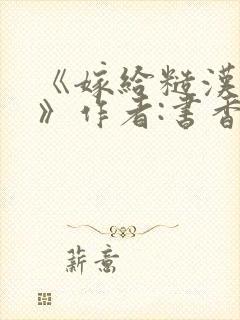 《嫁给糙汉
》作者:书香
薪意